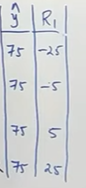 ŷ R₁
75 -25
75 -5
75 5
75 25